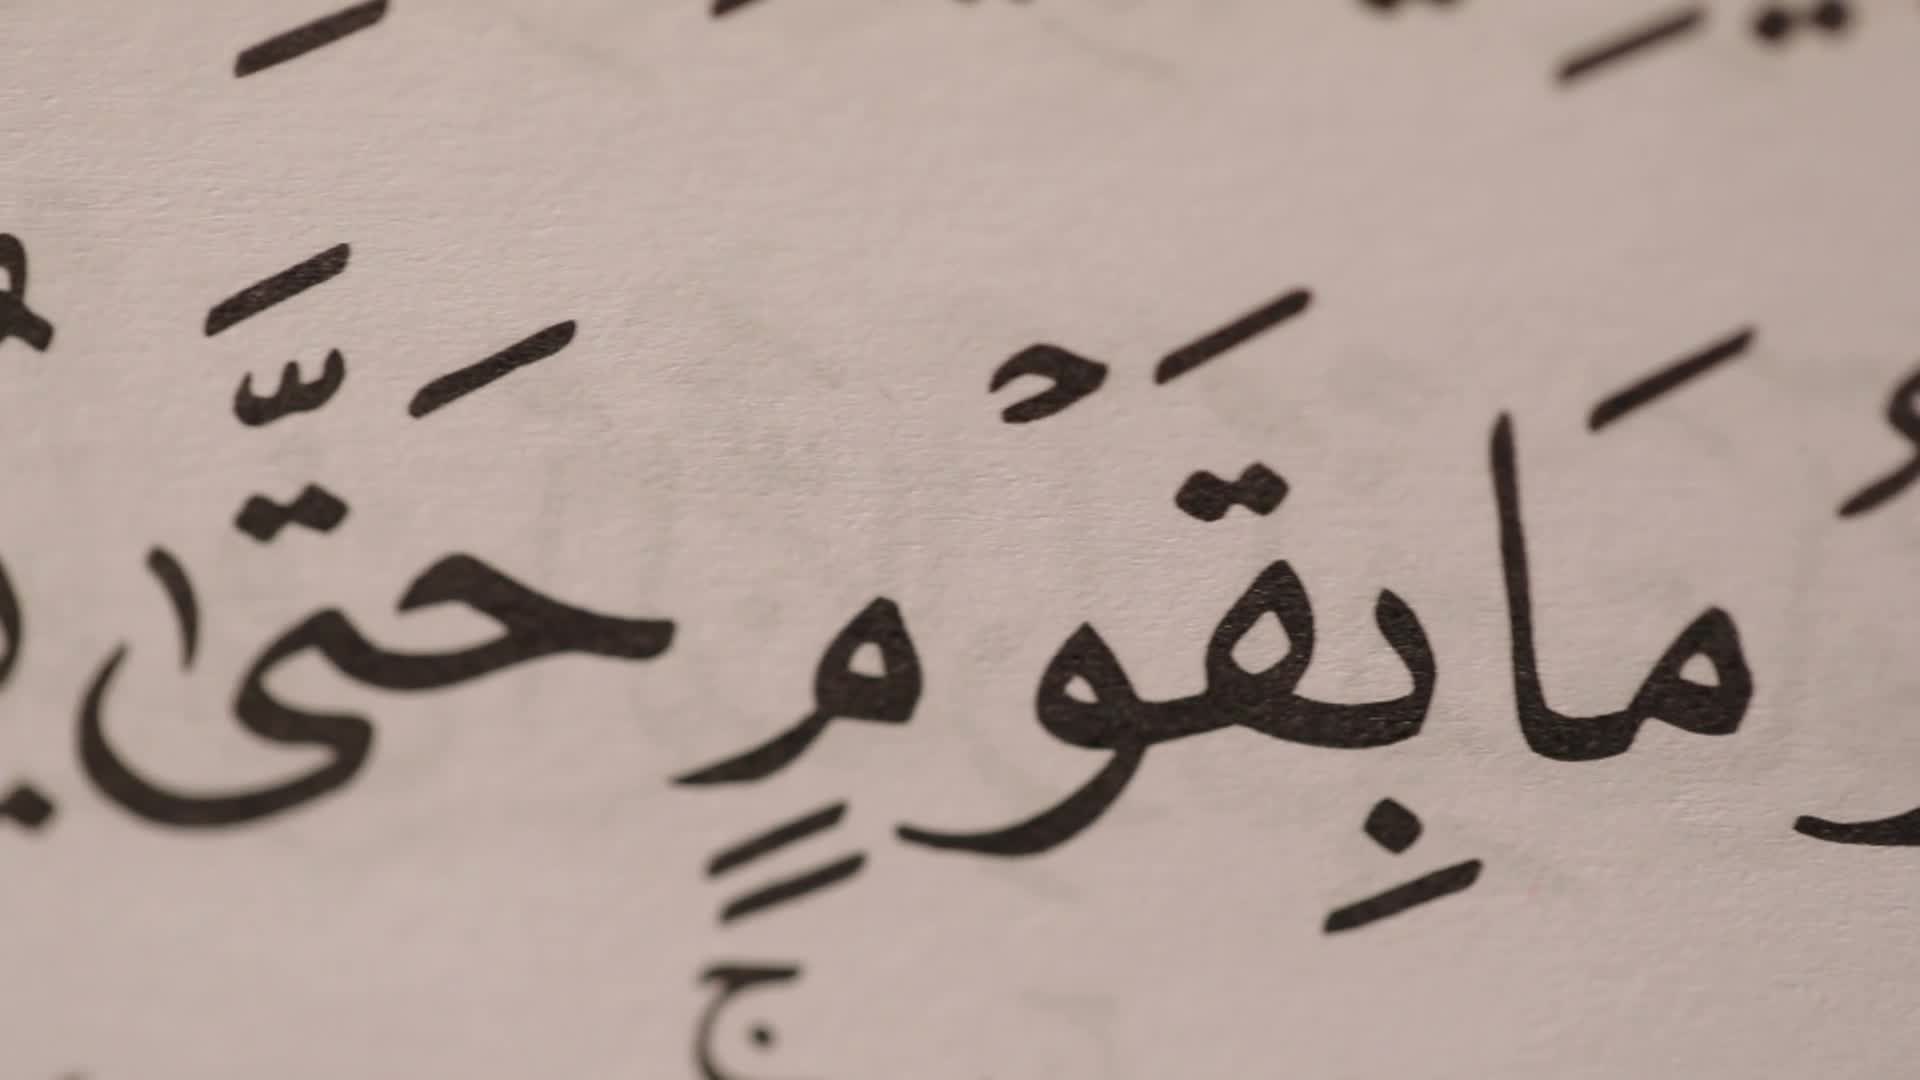 مَا بِقَوْمٍ حَتَّىٰ